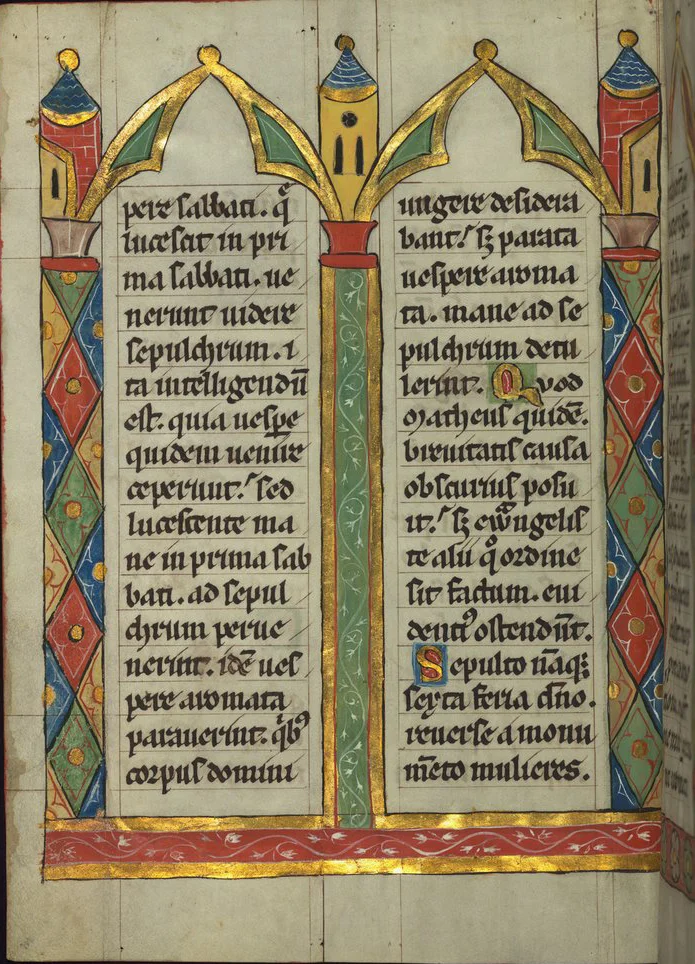 pere sabbati. qͣ
lucescit in pri
ma sabbati. ue
nerunt uidere
sepulchrum. i
ta intelligendū
est. quia uespe
quidem uenire
ceperunt: sed
lucescente ma
ne in prima sab
bati. ad sepul
chrum perue
nerint. idē ues
pere aromata
parauerint: qͥbꝰ
corpus domini
ungere desidera
bant: sꝫ parata
uespere aroma
ta. mane ad se
pulchrum detu
lerint. Quod
Matheus quidē.
breuitatis causa
obscurius posu
it: sꝫ ewͣngelis
te alii qͦ ordine
sit factum. eui
dentꝰ ostendūt.
Sepulto nāqꝫ
sexta feria dn̄o.
reuerse a monu
mēto mulieres.